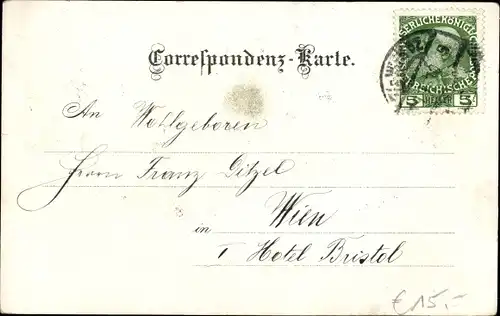 Correspondenz-Karte.
KAISERLICHE KÖNIGLICHE
5 HELLER 5
An Wohlgeboren
Herrn Franz Ditzel
in Wien
I Hotel Bristol
€ 15,-